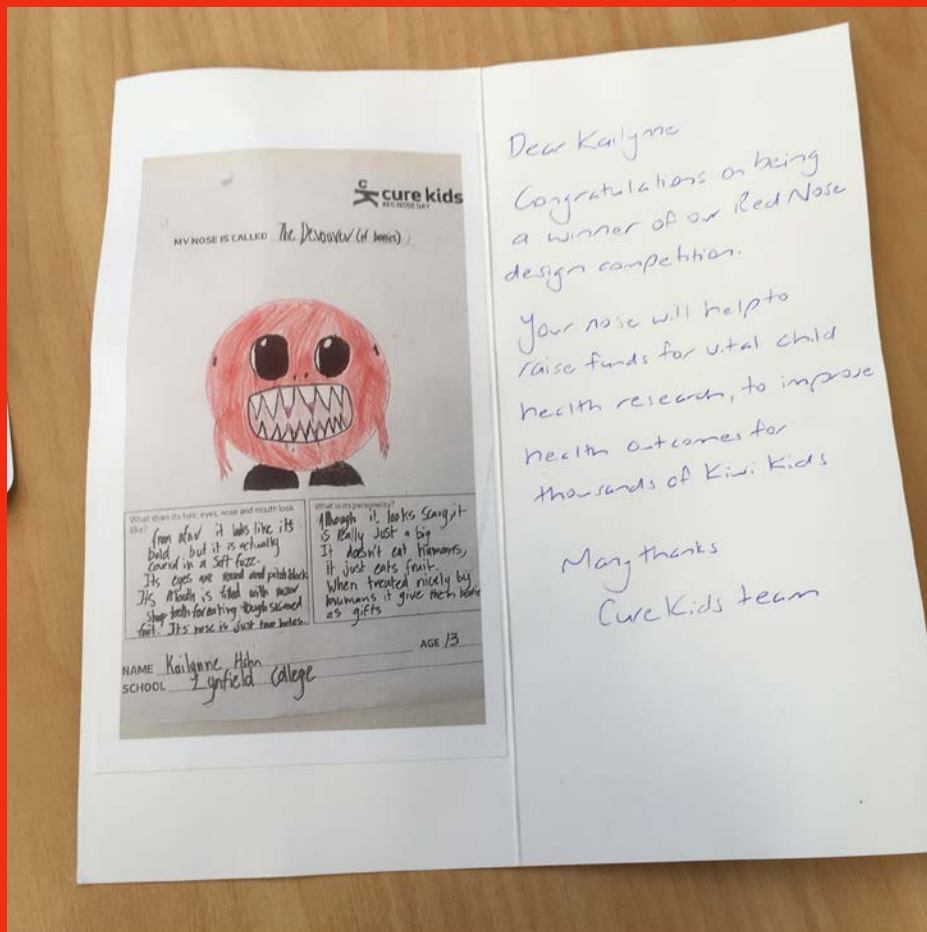 cure kids
RED NOSE DAY
MY NOSE IS CALLED The Devourer (of berries)
What does its hair, eyes, nose and mouth look
like?
from afar it looks like its
bald, but it is actually
covered in a soft fuzz.
Its eyes are round and pitch black
Its mouth is filled with razor
sharp teeth for eating tough skinned
fruit. Its nose is just two holes.
What is its personality?
Although it looks scary, it
is really Just a big
It doesn't eat humans,
it just eats fruit.
When treated nicely by
humans it give them berries
as gifts
NAME Kailynne Hahn AGE 13
SCHOOL Lynfield College
Dear Kailynne
Congratulations on being
a winner of our Red Nose
design competition.
Your nose will help to
raise funds for vital child
health research, to improve
health outcomes for
thousands of Kiwi Kids
Many thanks
Cure Kids team